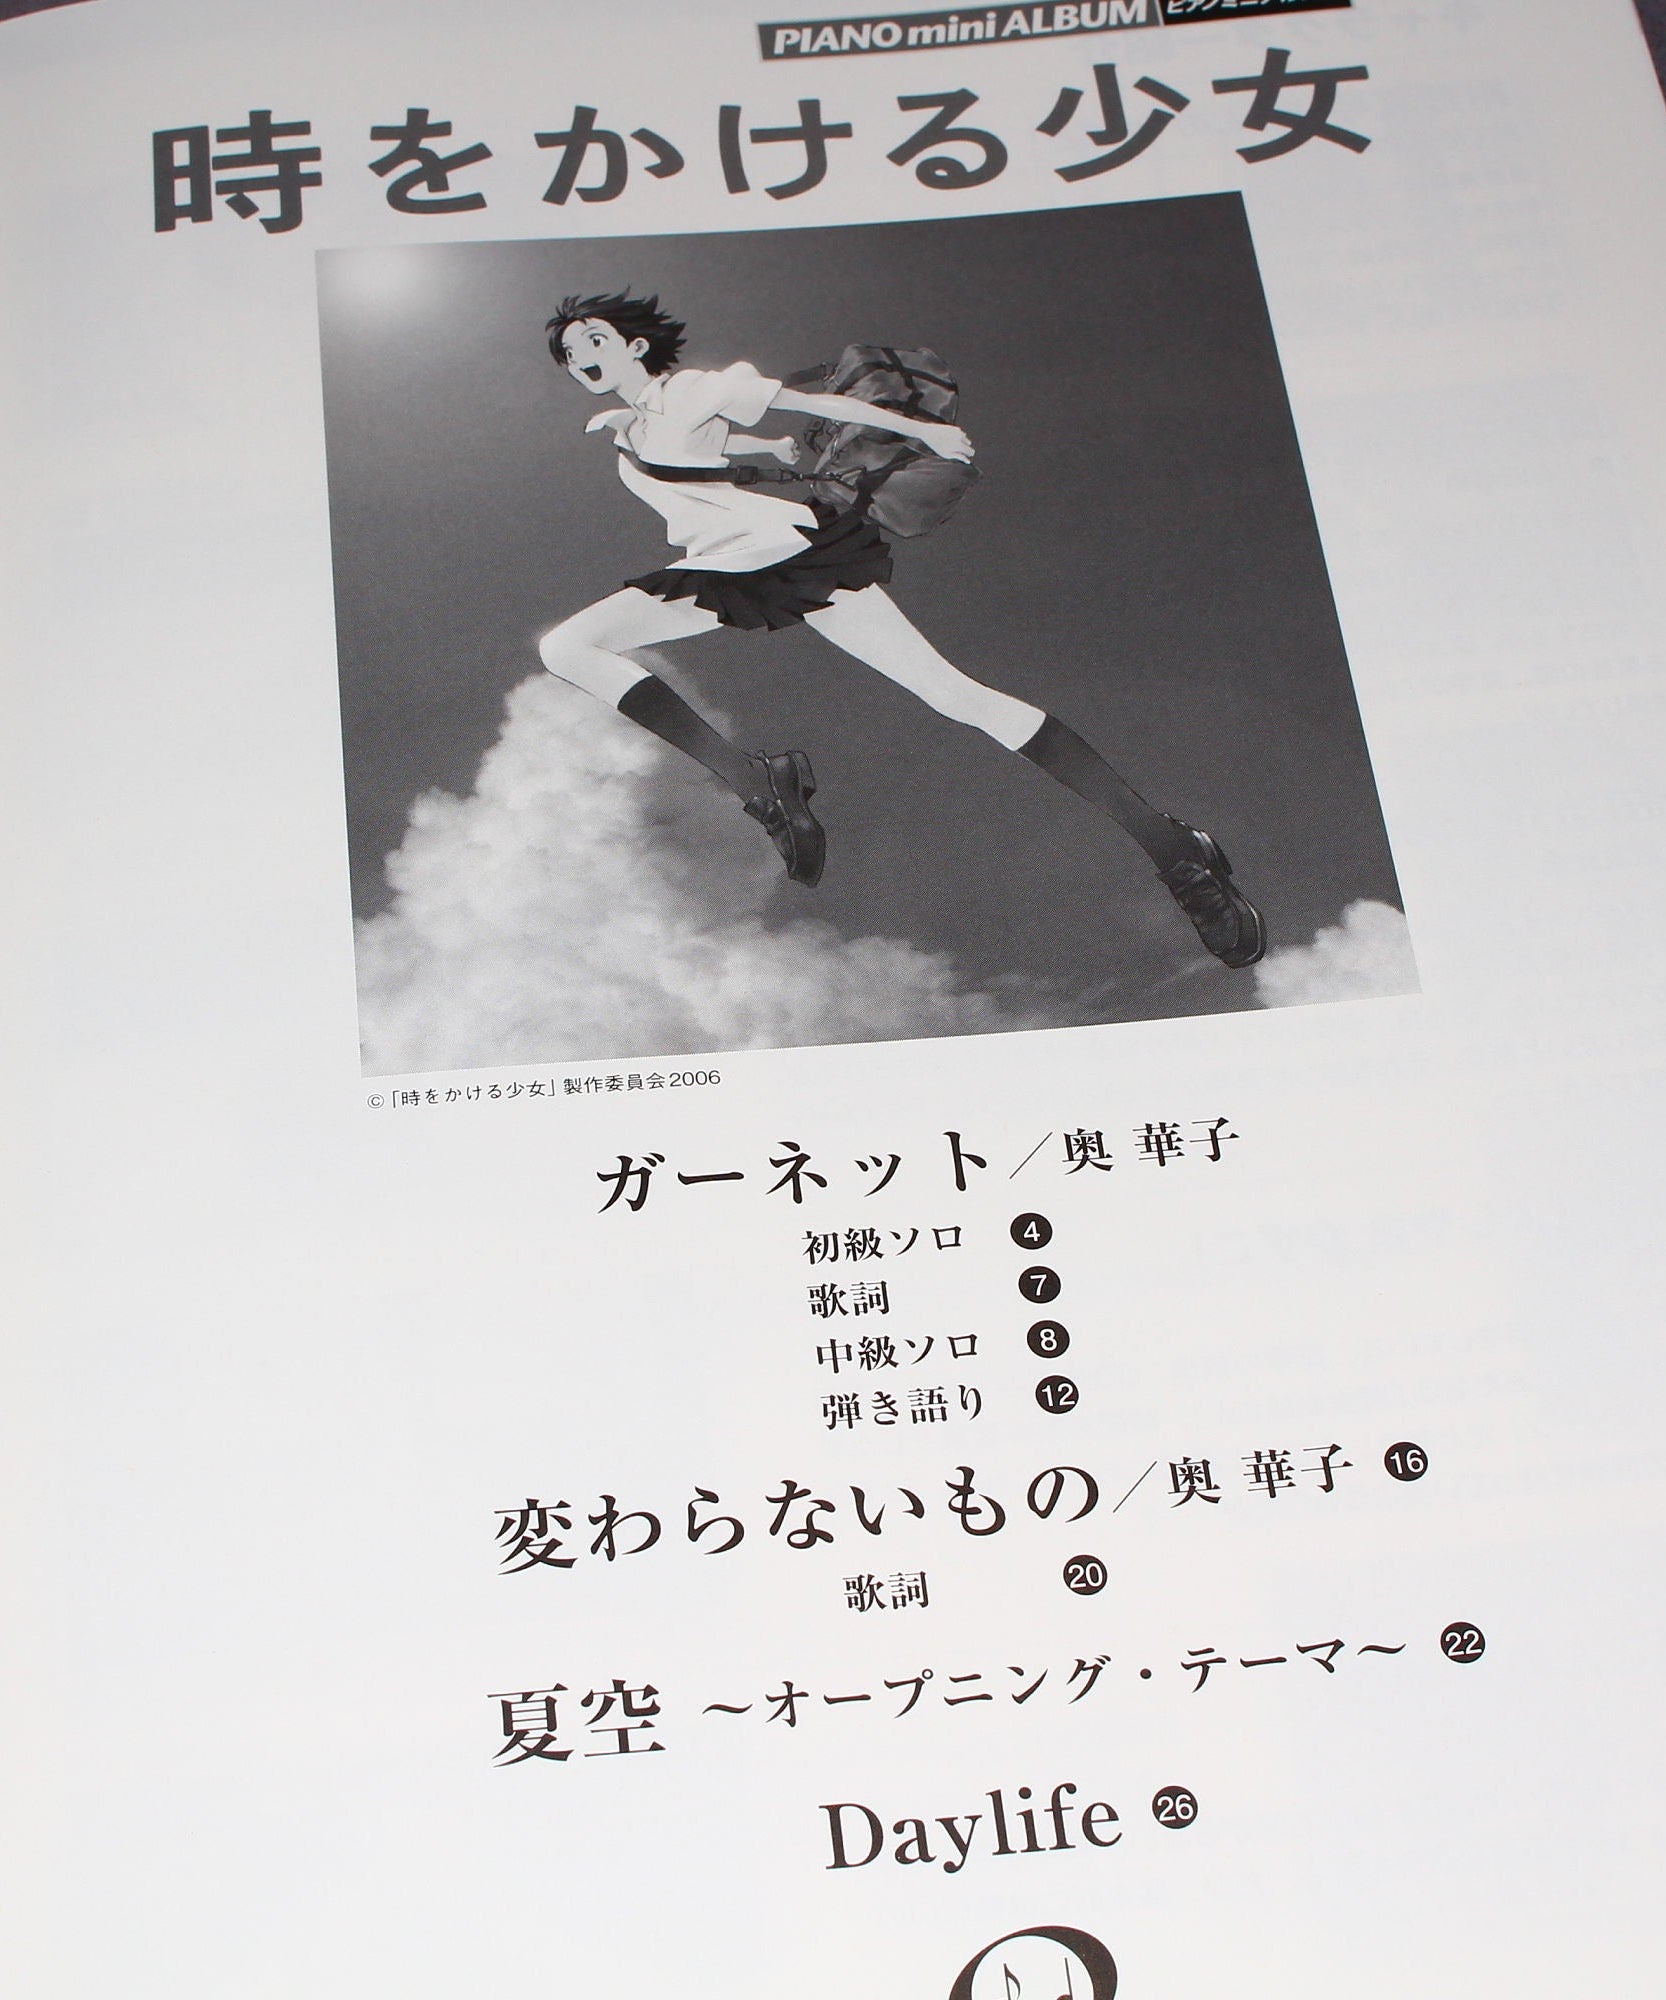 PIANO mini ALBUM
時をかける少女
©「時をかける少女」製作委員会2006
ガーネット／奥 華子
初級ソロ 4
歌詞 7
中級ソロ 8
弾き語り 12
変わらないもの／奥 華子 16
歌詞 20
夏空 〜オープニング・テーマ〜 22
Daylife 26